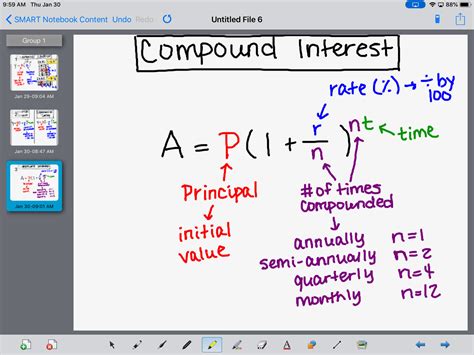 9:59 AM Thu Jan 30
88%
SMART Notebook Content Undo Redo
Untitled File 6
Group 1
Jan 29-09:04 AM
Jan 30-08:47 AM
Jan 30-09:03 AM
Compound Interest
rate (%) → ÷ by 100
A = P(1 + r/n)^nt ← time
Principal
initial
value
# of times
compounded
annually n=1
semi-annually n=2
quarterly n=4
monthly n=12